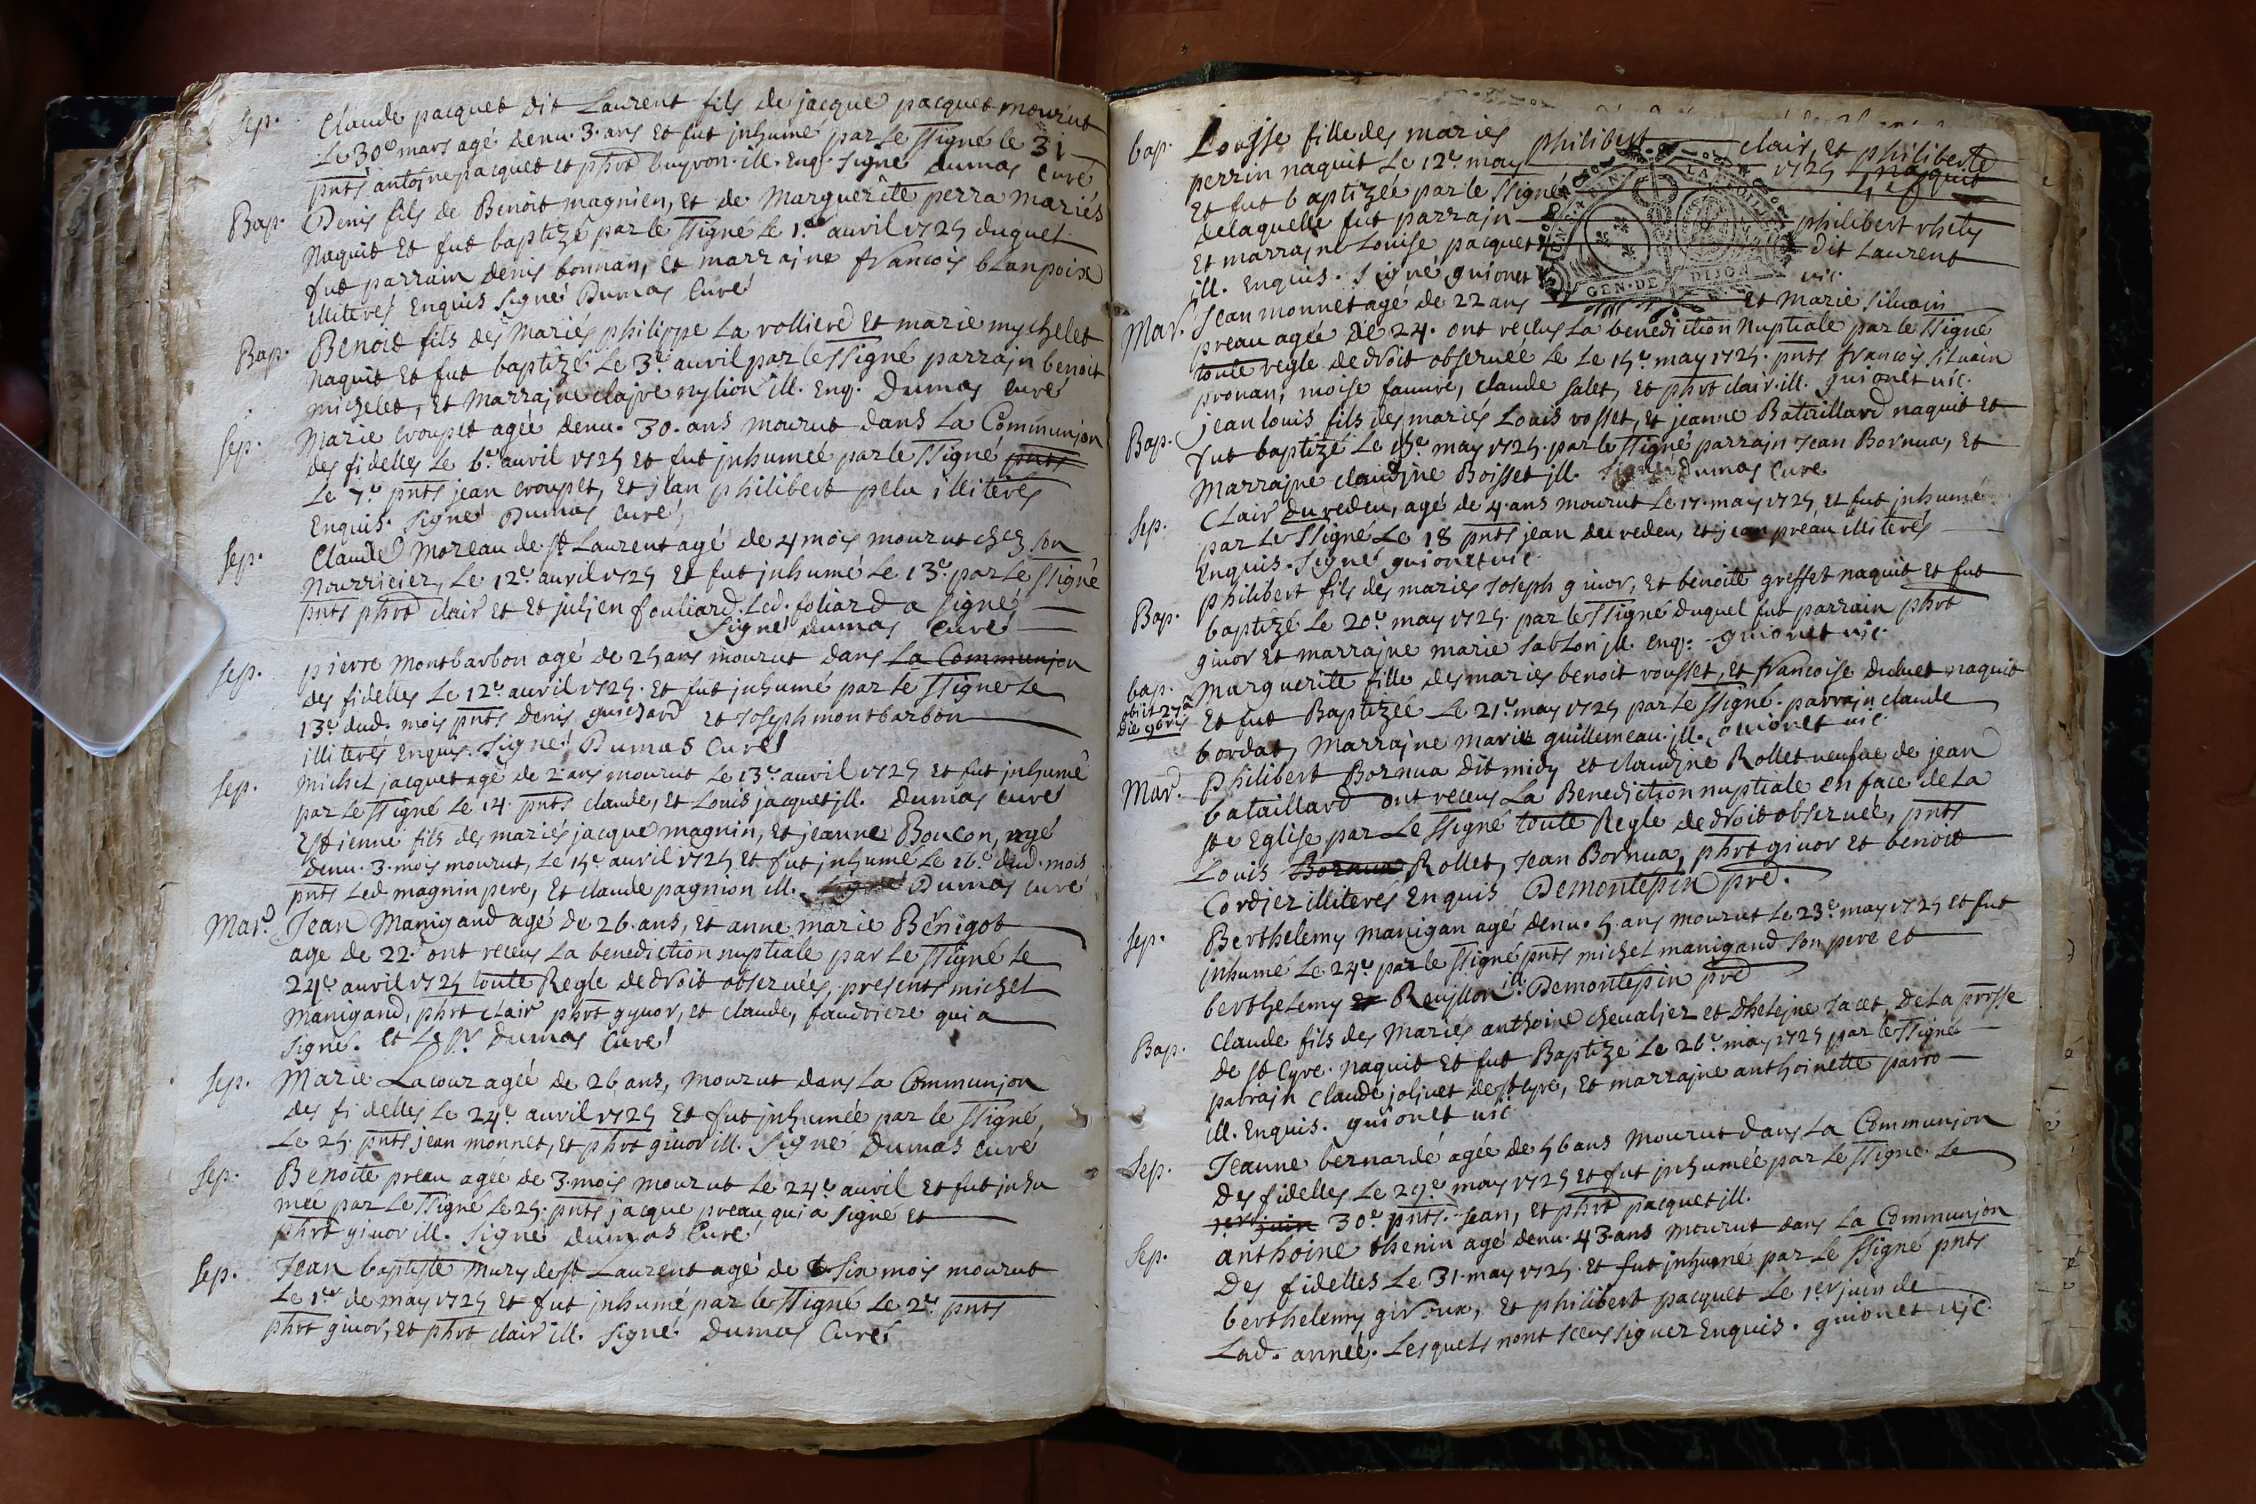 Sep. Claude pacquet dit Laurent fils de jacque pacquet mourut
Le 30e mars agé denu. 3. ans et fut jnhumé par le ssigné le 31
pnts antojne pacquet et phrt buyron. ill. Enq. signé Dumas Curé
Bap. Denis fils de Benoit magnien, et de Marguerite perra mariés
naquit et fut baptizé par le ssigné le 1er auvril 1725 duquel
fut parrain denis bonnan, et marrajne francois blanpoix
illiterés Enquis signé Dumas Curé
Bap. Benoit fils des Mariés philippe La rolliere et marie mychelet
naquit et fut baptizé Le 3e. auvril par le ssigné parrajn benoit
michelet, et Marrajne clajre rylion ill. Enq. Dumas Curé
Sep. Marie croupet agée denu. 30. ans mourut dans La Communjon
des fidelles Le 6e auvril 1725 et fut jnhumeé par le ssigné pnts
Le 7e. pnts jean croupet, et jean philibert pelu illiterés
Enquis. signé Dumas Curé
Sep. Claude Moreau de st Laurent agé de 4 mois mourut chez son
Nourricier, Le 12e. auvril 1725 et fut jnhumé Le 13e. par Le ssigné
pnts phrt clair et et juljen fouliard. Led. foliard a signé
signé Dumas curé
Sep. pierre Montbarbon agé de 25 ans mourut dans La Communjon
des fidelles Le 12e auvril 1725. et fut jnhumé par le ssigné Le
13e. dud. mois pnts Denis guichard et Joseph montbarbon
illiterés Enquis. signé Dumas Curé
Sep. Michel jacquet agé de 2 ans mourut Le 13e. auvril 1725 et fut jnhumé
par Le ssigné Le 14. pnts claude, et Louis jacquet jll. Dumas Curé
Estienne fils des mariés jacque magnin, et jeanne Boucon, agé
denu. 3. mois mourut, Le 15e auvril 1725 et fut jnhumé Le 16e. dud. mois
pnts Led. magnin pere, et claude pagnion ill. signé Dumas Curé
Mard. Jean Manigand agé de 26. ans, et anne marie Bénigot
age de 22. ont receu La benediction nuptiale par Le ssigné Le
24e. auvril 1725 toute Regle de droit obserueés, presents michel
Manigand, phrt clair phrt gyuor, et claude, faudriere qui a
signé. et Le sr. Dumas Curé
Sep. Marie Lacour agéé de 26 ans, mourut dans La Communjon
des fidelles Le 24e auvril 1725 et fut jnhumée par le ssigné,
Le 25. pnts jean monnet, et phrt giuor ill. signé Dumas Curé
Sep. Benoite preau ageé de 3. mois mourut Le 24e. auvril et fut jnhu
mee par Le ssigné Le 25. pnts jacque preau, qui a signé et
phrt giuor ill. signé Dumas Curé
Sep. Jean baptiste Mury de st Laurent agé de six mois mourut
Le 1er de may 1725 et fut jnhumé, par le ssigné Le 2e. pnts
phrt giuor, et phrt clair ill. signé Dumas Curé
bap. Loujse fille des mariés philibert clair, et philiberte
perrin naquit Le 12e. may 1725 naquit
et fut baptizeé par le ssigné
delaquelle fut parrajn philibert rhety
et marrajne Louise pacquet dit Laurent
jll. Enquis. signé guionet uic
Mar. Jean monnet agé de 22 ans et Marie siluain
preau agée de 24. ont receus La benediction Nuptiale par le ssigné
toute regle de droit obserueé Le Le 15e. may 1725. pnts francois siluain
pronan, moise fauure, claude salet, et phrt clair. ill. guionet uic.
Bap. jean louis fils des mariés Louis rosset, et jeanne Bataillard naquit et
fut baptizé Le 15e may 1725. par le ssigné parrajn Jean Bornua, et
Marrajne claudjne Boisset jll. signé Dumas Curé
Sep. Clair du redeu, agé de 4. ans mourut Le 17. may 1725 et fut jnhumé
par Le ssigné Le 18 pnts jean du redeu, et jean preau illiterés
Enquis. signé guionet uic
Bap. philibert fils des mariés Joseph giuor, et benoite greffet naquit et fut
baptizé Le 20e may 1725. par le ssigné duquel fut parrain phrt
giuor et marrajne marie sablon jll. enq. guionet uic.
bap. Marguerite fille des mariés benoit rousset, et francoise duluet naquit
obiit 27a die 9bris
et fut Baptizée Le 21e. may 1725 par le ssigné. parrajn claude
bordat, Marrajne Marie guillemeau. jll. guionet uic.
Mard. Philibert Bornua dit midy et claudjne Rollet ueufue de jean
bataillard ont receus La Benediction nuptiale en face de La
ste Eglise par Le ssigné toute Regle de droit obserueé, pnts
Louis Bornua Rollet, Jean Bornua, phrt giuor et benoit
Cordjer illiterés Enquis Demontepin pre.
Sep. Berthelemy Manigan agé denu. 5. ans mourut Le 23e. may 1725 et fut
jnhumé Le 24e. par le ssigné pnts michel manigand son pere et
berthelemy et Reuyllon ill. Demontepin pre
Bap. Claude fils des Mariés anthoine chevaljer et Dhelejne Jacet, de La prosse
de st Cyre. naquit et fut Baptizé Le 26e. may 1725 par le ssigné
parrajn claude joljuet de st cyre, et marrajne anthoinette parro
ill. Enquis. guionet uic
Sep. Jeanne bernardé agée de 56 ans mourut dans La Communjon
des fidelles Le 29e may 1725 et fut jnhumée par Le ssigné Le
1er juin 30e. pnts. Jean, et phrt pacquet jll.
Sep. anthoine thenin agé denu. 43. ans mourut dans La Communjon
des fidelles Le 31. may 1725. et fut jnhumé par Le ssigné pnts
berthelemy giroux, et philibert pacquet Le 1er juin de
Lad. anneé. Lesquels nont sceu signer Enquis. guionet uic
GEN. DE DIJON